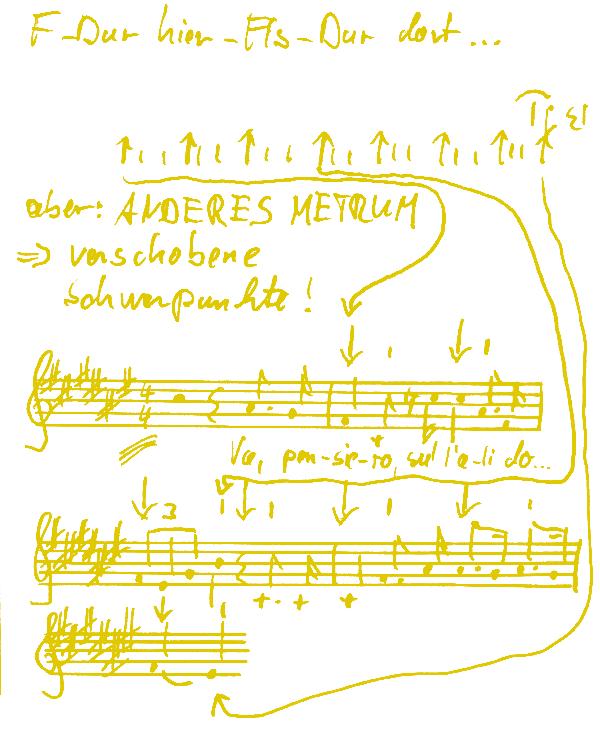 F-Dur hier - Fis-Dur dort ...
aber: ANDERES METRUM
=> verschobene
Schwerpunkte!
4
4
Va, pen-sie-ro, sul l'a-li do...
3